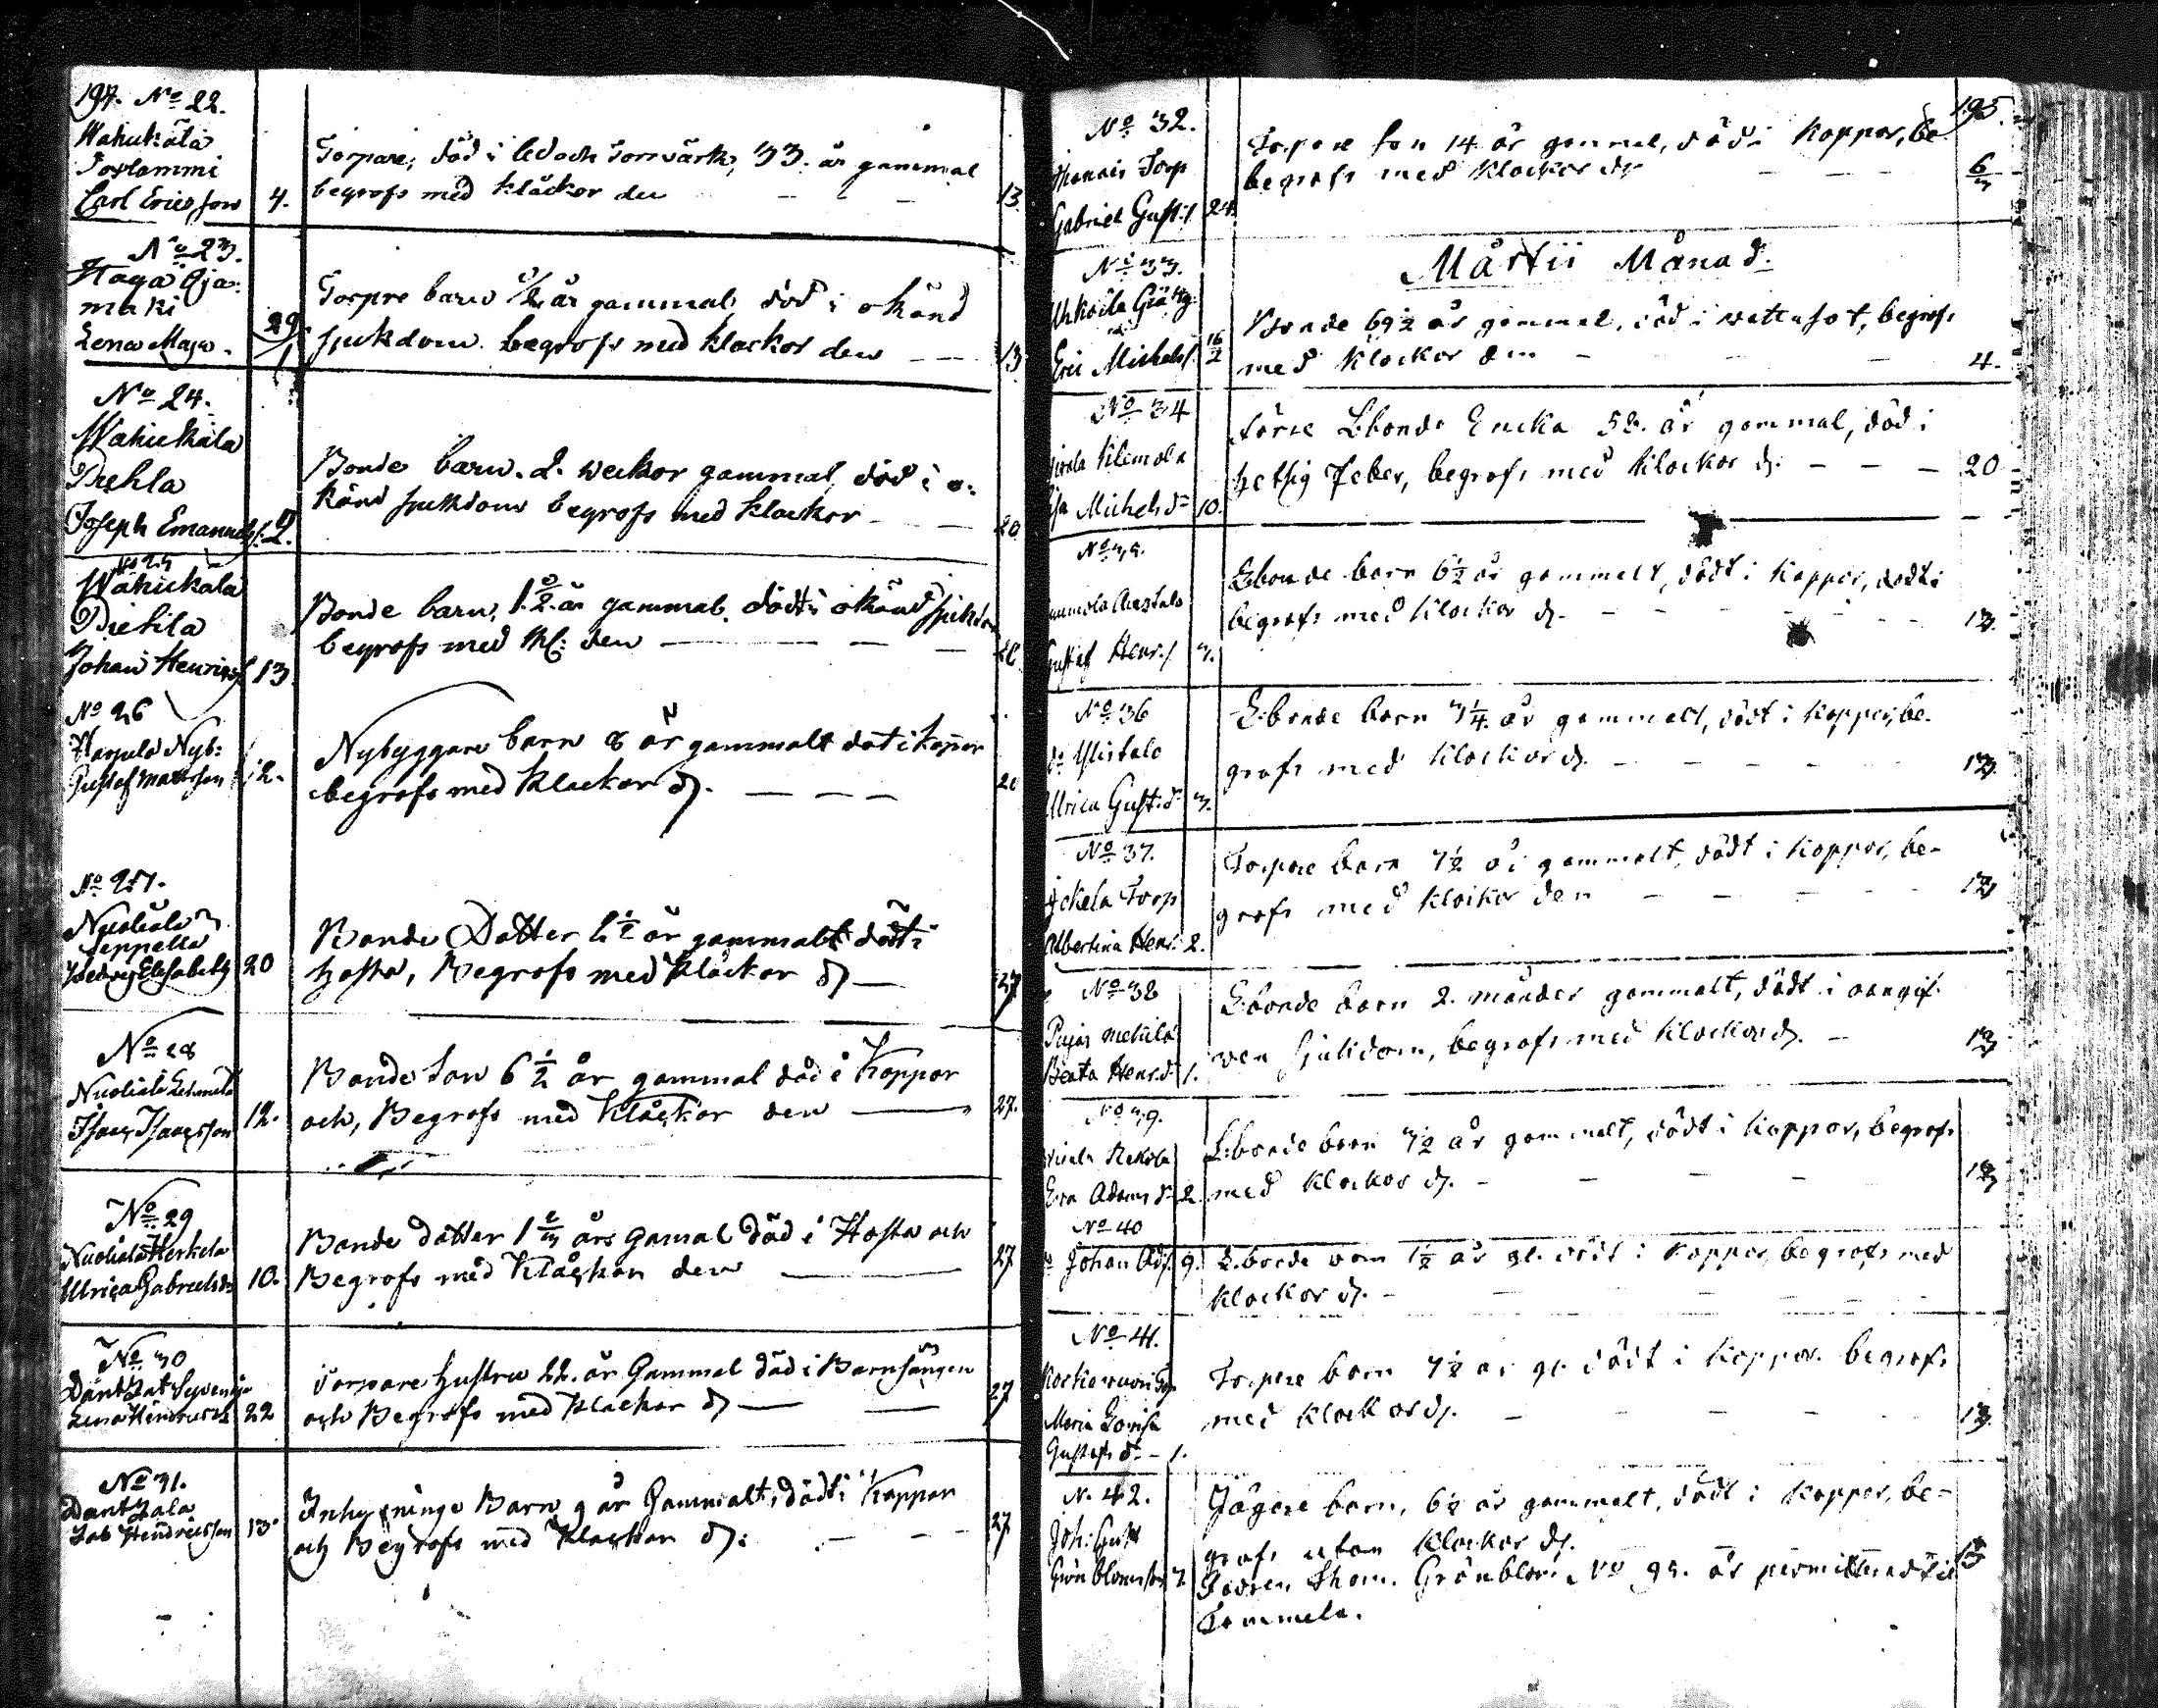 194. No 22.
Wahukälä
Torlammi
Carl Ericsson 4.
Torpare, död i led och torrvärk, 33. år gammal
begrofs med klåckor den - - - 13.
No 23.
Haga Oja=
maki
Lena Maja. 29/1
Torpre barn 1/2 år gammal, död i okänd
sjukdom. begrofs med klockor den - - 13
No 24.
Wahukälä
Prehla
Joseph Emanuels. 2.
Bonde barn. 2. weckor gammal, död i o:
känd sjukdom begrofs med klockor - - 20
No 25
Wahukala
Piehla
Johan Henricss. 13
Bonde barn, 1 1/2 år gammal. dödt i okänd sjukdom
begrofs med kl: den - - - 20
No 26
Harjula Nyb:
Gustaf Matsson 12.
Nybyggare barn 8 år gammalt döt i koppor
begrofs med klackor d. - - - 20
No 27.
Nuoliala
Seppella
Hedvig Elisabeth 20
Bonde Dotter 1 1/2 år gammalt dödt i
hosta, Begrofs med klåckor d - 27
No 28
Nuoliala
Isaac Isaacsson 12.
Bonde Son 6 1/2 år gammal död i Koppor
och, Begrofs med klåckor den - 27.
No 29
Nuoliala Herkela
Ulrica Gabriels dr 10.
Bonde dotter 1 års gamal död i Hosta och
Begrofs med klåckor den - 27
No 30
Lena Hendricsd. 22
Torpare hustru 22. år Gammal död i Barnsängen
och Begrofs med klackor d - - 27
No 31.
Dantzala
Jab Hendricsson 13.
Inhysninge Barn 9 år Gammalt, dödt i Koppor
och Begrofs med Klackor d: - - - 27
195.
No 32.
Torp
Gabriel Gust:s. 24.
Torpare son 14 år gammal, död i koppor, be-
begrofs med klockor d - - - 6/3
Martii Månad.
No 33.
Eric Michels. 16/2
Bonde 69 1/2 år gammal, död i wattusot, begrofs
med klockor den - - - 4.
No 34
Klemola
Lisa Michels dr 10.
förre Lbonde Encka 52. år gammal, död i
hetsig feber, begrofs med klockor d. - - - 20
No 35.
Gustaf Henr.s 3.
Lbonde barn 6 1/2 år gammalt, dödt i koppor, dödt i
begrofs med klockor d. - - - 13.
No 36
do Ylistalo
Ulrica Gust:dr 3.
Lbonde barn 3 1/4 år gammalt, dödt i koppor, be-
grofs med klockor d. - - - 13.
No 37.
Torp
Albertina Henr. 2.
Torpare barn 3 1/2 år gammalt, dödt i koppor, be-
grofs med klockor den - - - 13
No 38
Beata Henr.dr 1.
Lbonde barn 2. månader gammalt, dödt i oangif-
wen sjukdom, begrofs med klockor d. - 13
No 39.
Eva Adams dr 2.
Lbonde barn 3 1/2 år gammalt, dödt i koppor, begrofs
med klockor d. - - - 13
No 40
do Johan Ad.s. 9.
Lbonde barn 1 1/2 år gl. dödt i koppor, begrofs med
klockor d. - - -
No 41.
Maria Lovisa
Gustafs dr - 1.
Torpare barn 3 1/2 år gl. dödt i koppor. begrofs
med klockor d. - - - 13.
N. 42.
Joh: Gust
Grönblomsson 7.
Jägare barn, 6 1/2 år gammalt, dödt i koppor, be-
grofs utan klockor d. 13
Fadren Thom. Grönblom No 95. är permitterad til
Tammela.